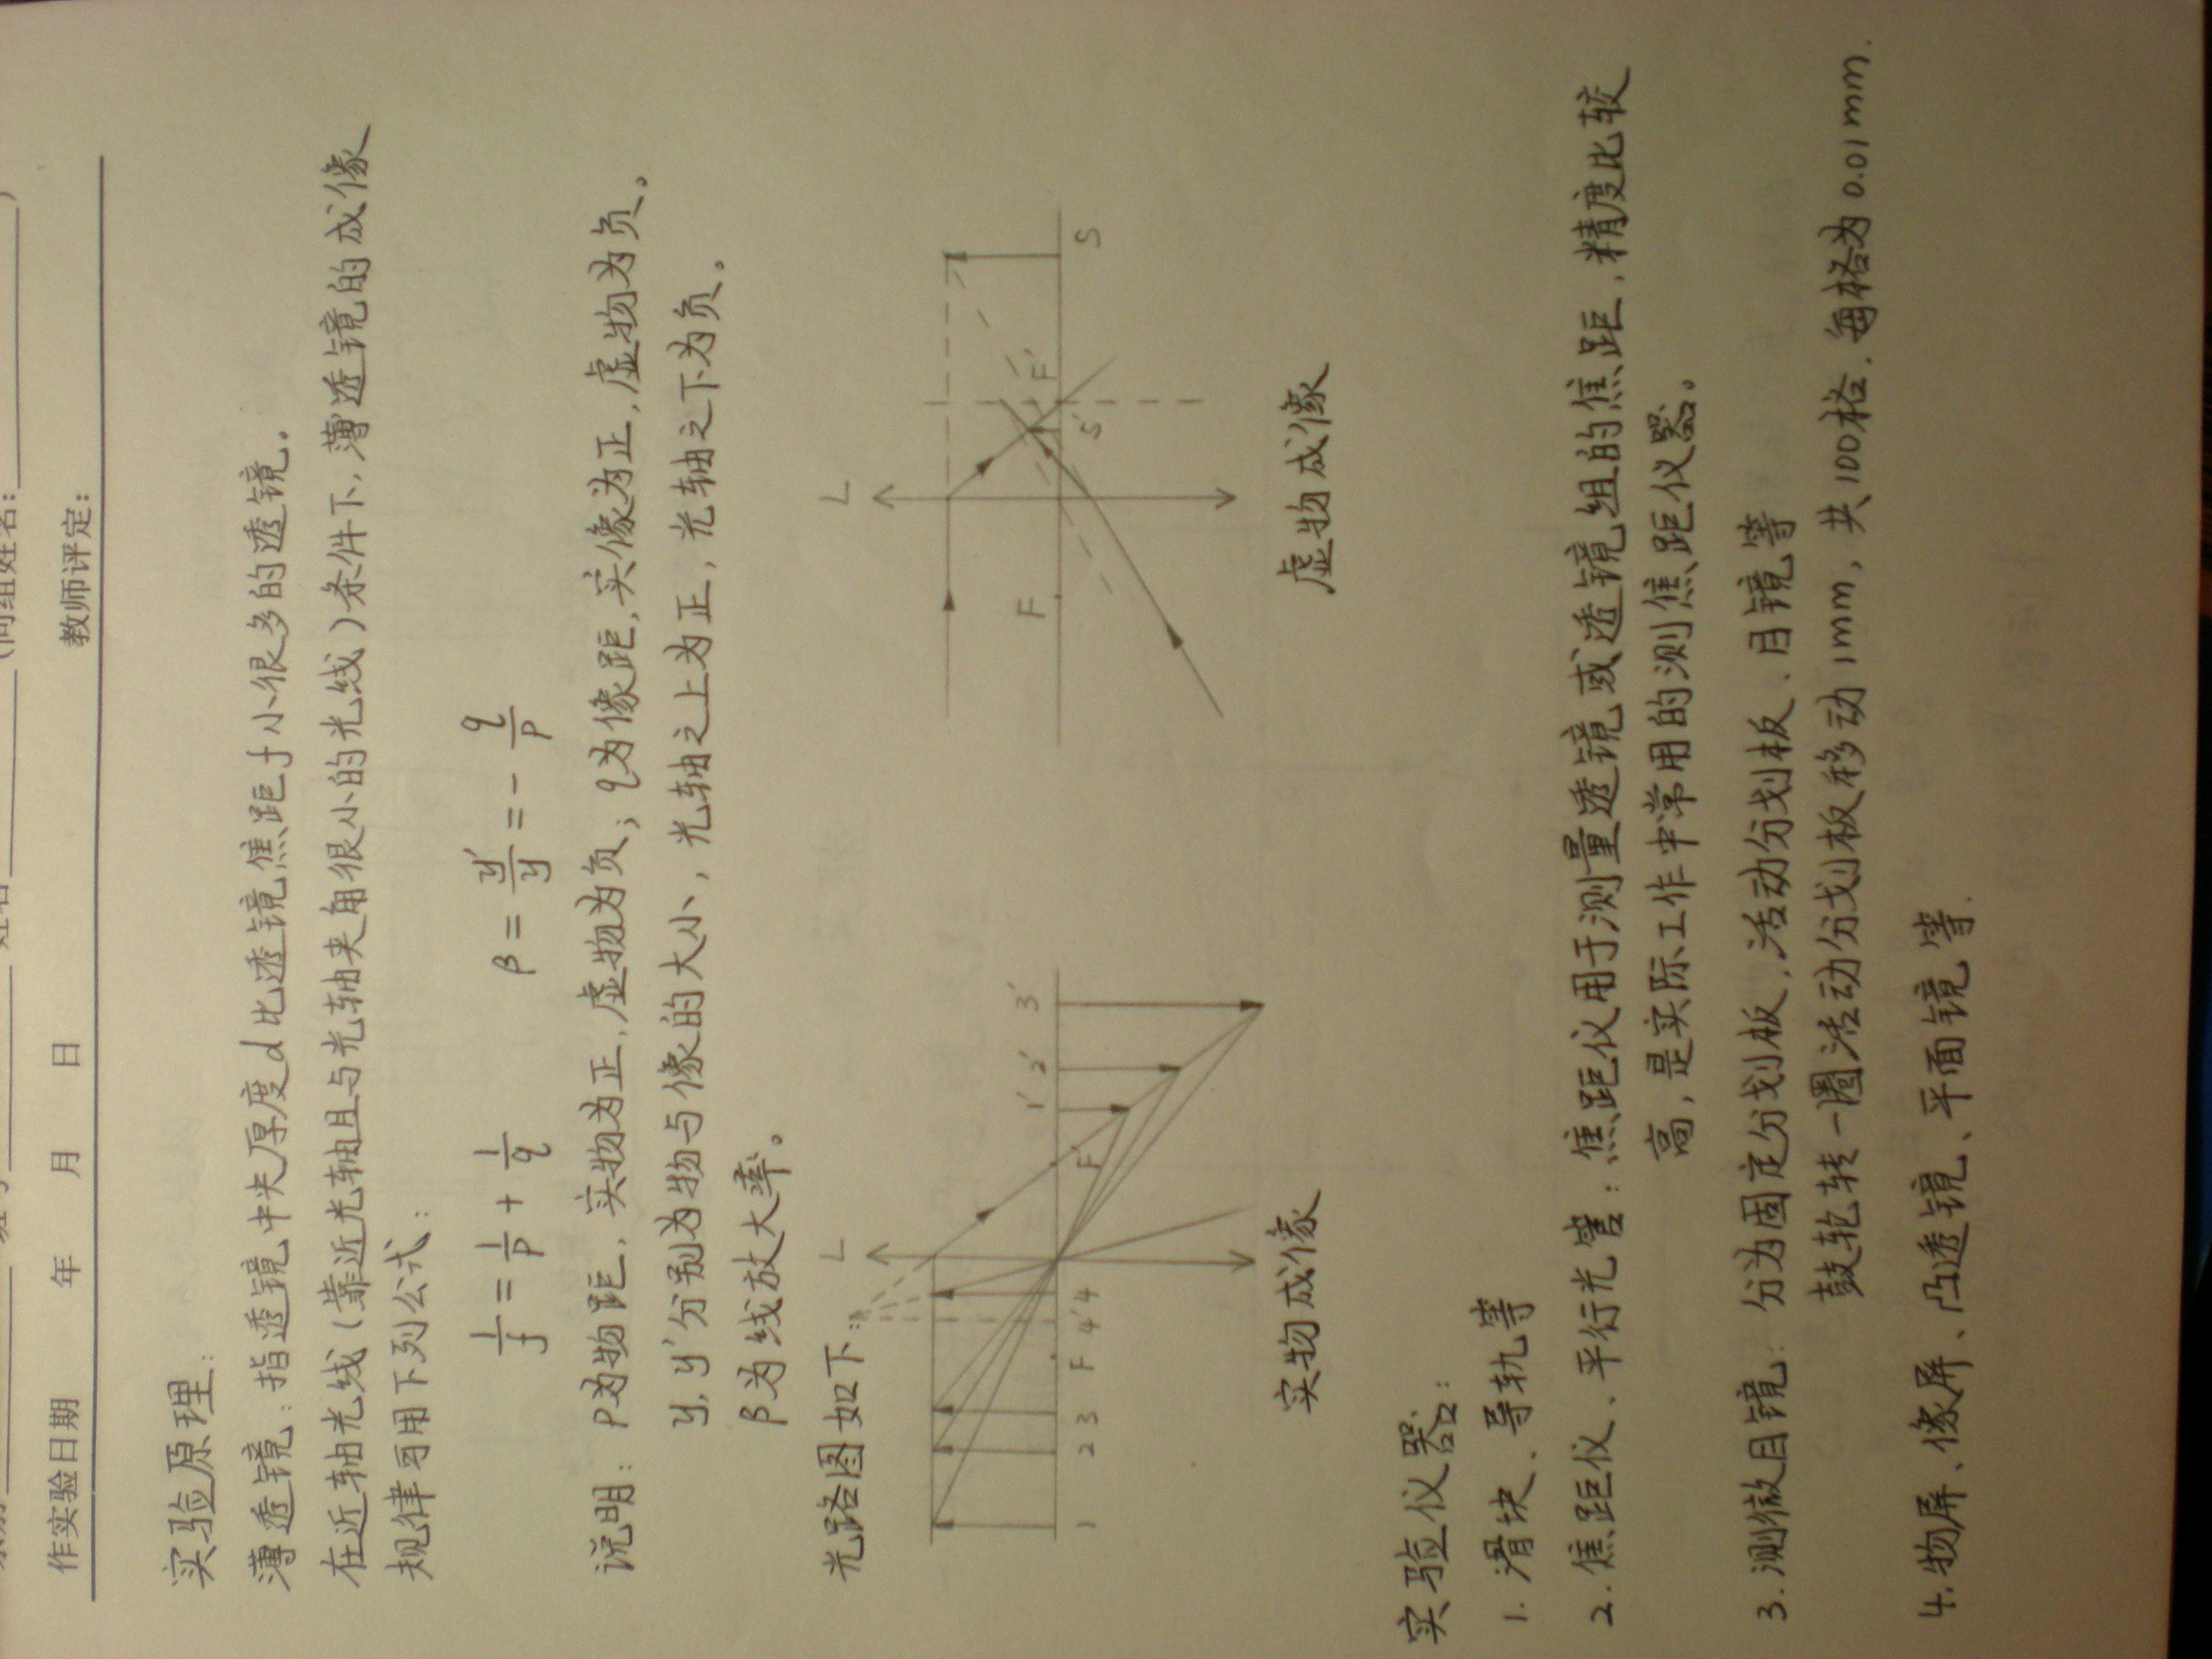 (同组姓名: )
作实验日期 年 月 日 教师评定:
实验原理:
薄透镜:指透镜中央厚度d比透镜焦距f小很多的透镜。
在近轴光线(靠近光轴且与光轴夹角很小的光线)条件下,薄透镜的成像
规律可用下列公式:
1/f = 1/p + 1/q β = y'/y = - q/p
说明: p为物距,实物为正,虚物为负; q为像距,实像为正,虚物为负。
y, y'分别为物与像的大小,光轴之上为正,光轴之下为负。
β为线放大率。
光路图如下:
L L
1' 2' 3' F F' S
1 2 3 F 4' 4 F' S'
实物成像 虚物成像
实验仪器:
1. 滑块、导轨等
2. 焦距仪、平行光管:焦距仪用于测量透镜或透镜组的焦距,精度比较
高,是实际工作中常用的测焦距仪器。
3. 测微目镜:分为固定分划板,活动分划板、目镜等
鼓轮转一圈活动分划板移动1mm,共100格.每格为0.01mm.
4. 物屏、像屏、凸透镜、平面镜等.